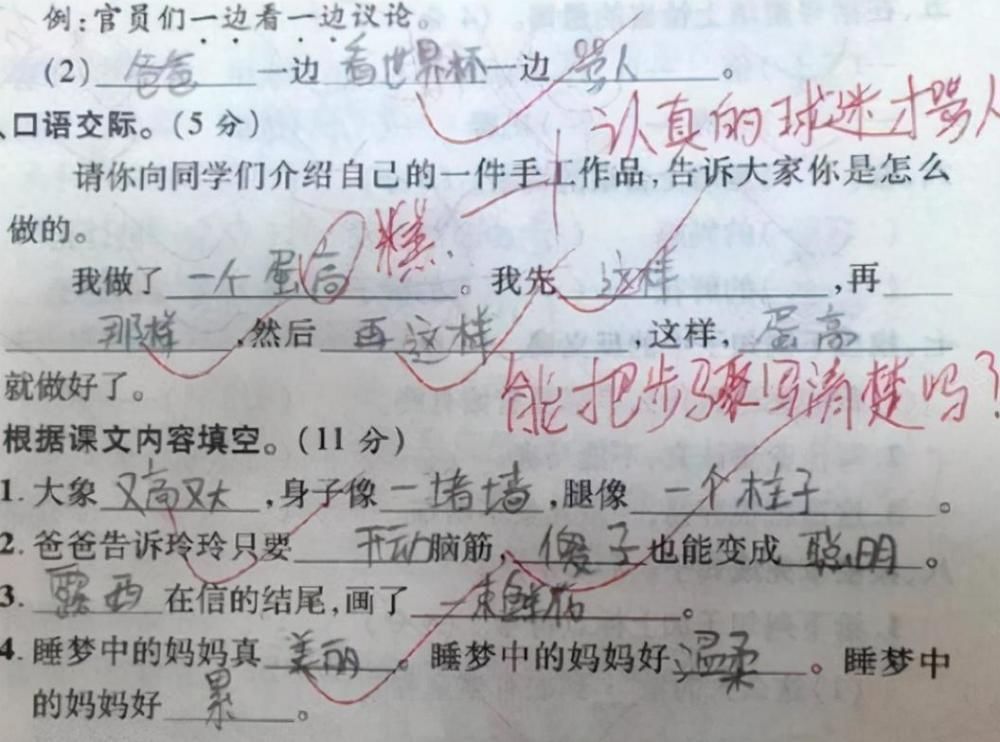 例:官员们一边看一边议论。
(2) 爸爸 一边 看世界杯 一边 骂人 。
认真的球迷才骂人
、口语交际。(5 分)
请你向同学们介绍自己的一件手工作品,告诉大家你是怎么
做的。
糕
我做了 一个蛋高 。我先 这样 ,再
那样 ,然后 再这样 ,这样, 蛋高
就做好了。
能把步骤写清楚吗?
根据课文内容填空。(11 分)
1. 大象 又高又大 ,身子像 一堵墙 ,腿像 一个柱子 。
2. 爸爸告诉玲玲只要 开动 脑筋, 傻子 也能变成 聪明 。
3. 露西 在信的结尾,画了 一束鲜花 。
4. 睡梦中的妈妈真 美丽 。睡梦中的妈妈好 温柔 。睡梦中
的妈妈好 累 。